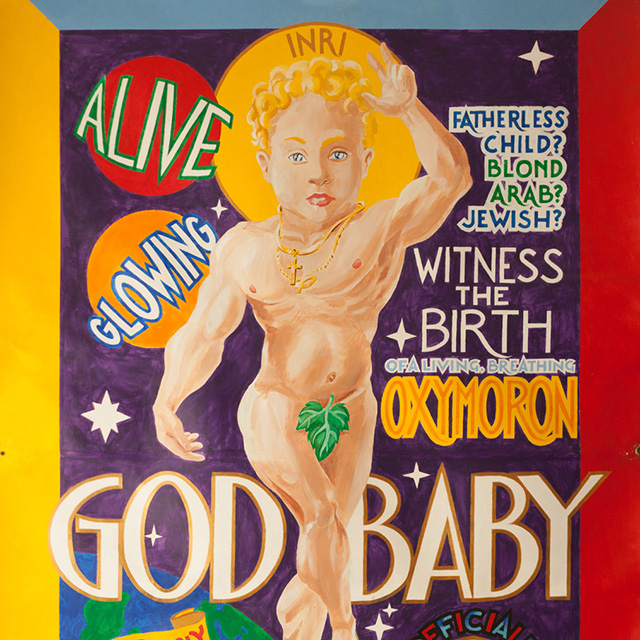 INRI
ALIVE
GLOWING
FATHERLESS
CHILD?
BLOND
ARAB?
JEWISH?
WITNESS
THE
BIRTH
OF A LIVING, BREATHING
OXYMORON
GOD BABY